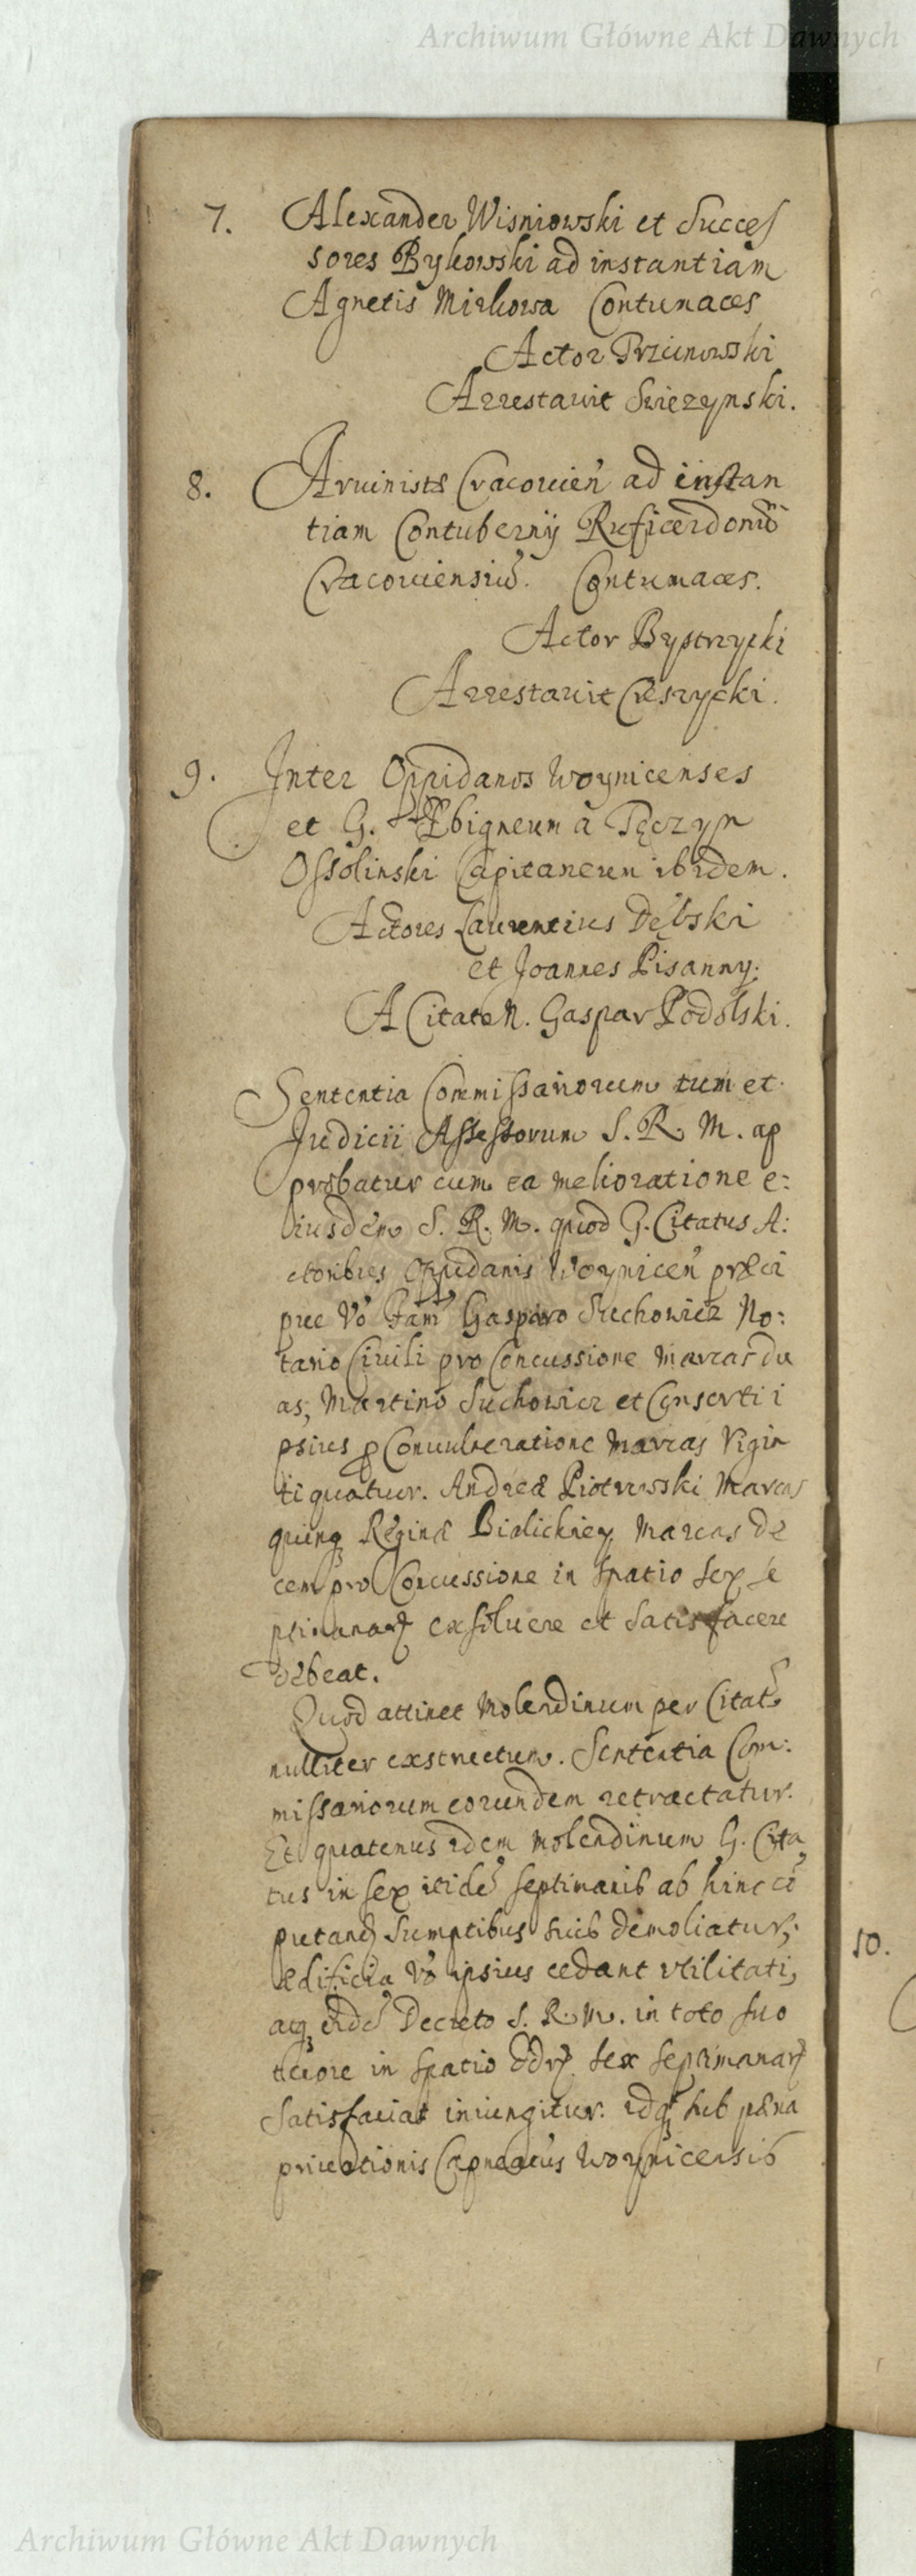 Archiwum Główne Akt Dawnych
7. Alexander Wisniowski et Succes
sores Bykowski ad instantiam
Agnetis Mirkowa Contumaces
Actor Trzcinowski
Arrestavit Swiezynski.
8. Arvinistæ Cracovien̄ ad instan
tiam Contubernij Ruficerdonū
Cracoviensiū. Contumaces.
Actor Bystrzycki
Arrestavit Cieszycki.
9. Inter Oppidanos Woynicenses
et G. Zbigneum à Tęczyn
Ossolinski Capitaneum ibidem.
Actores Laurentius Dębski
et Joannes Pisanny.
A Citateń. Gaspar Podolski.
Sententia Commissariorum tum et
Judicii Assessorum S. R. M. ap
probatur cum ea melioratione e:
iusdem S. R. M. quod G. Citatus A:
ctoribus Oppidanis Woynicen̄ præci
pue Vō Fam̄ Gasparo Suchowicz No:
tario Civili pro Concussione Marcas du
as, Martino Suchowicz et Consorti i
psius p Convulneratione Marcas Vigin
ti quatuor. Andreæ Piotrowski Marcas
quinq Reginæ Bialickiey Marcas de
cem pro Concussione in spatio sex se
ptimanarꝝ exsoluere et Satisfacere
debeat.
Quod attinet Molendinum per Citatū
nulliter exstructum. Sententia Com:
missariorum eorundem retractatur.
Et quatenus idem molendinum G. Cita
tus in sex itidē septimanis ab hinc cō
putand Sumptibus suis demoliatur,
ædificia Vō ipsius cedant utilitati,
atq eidē Decreto S. R. M. in toto suo
tenore in spatio eodꝝ sex septimanarꝝ
Satisfaciat iniungitur. idq sub pæna
privationis Capneatus Woynicensis
10.
Archiwum Główne Akt Dawnych